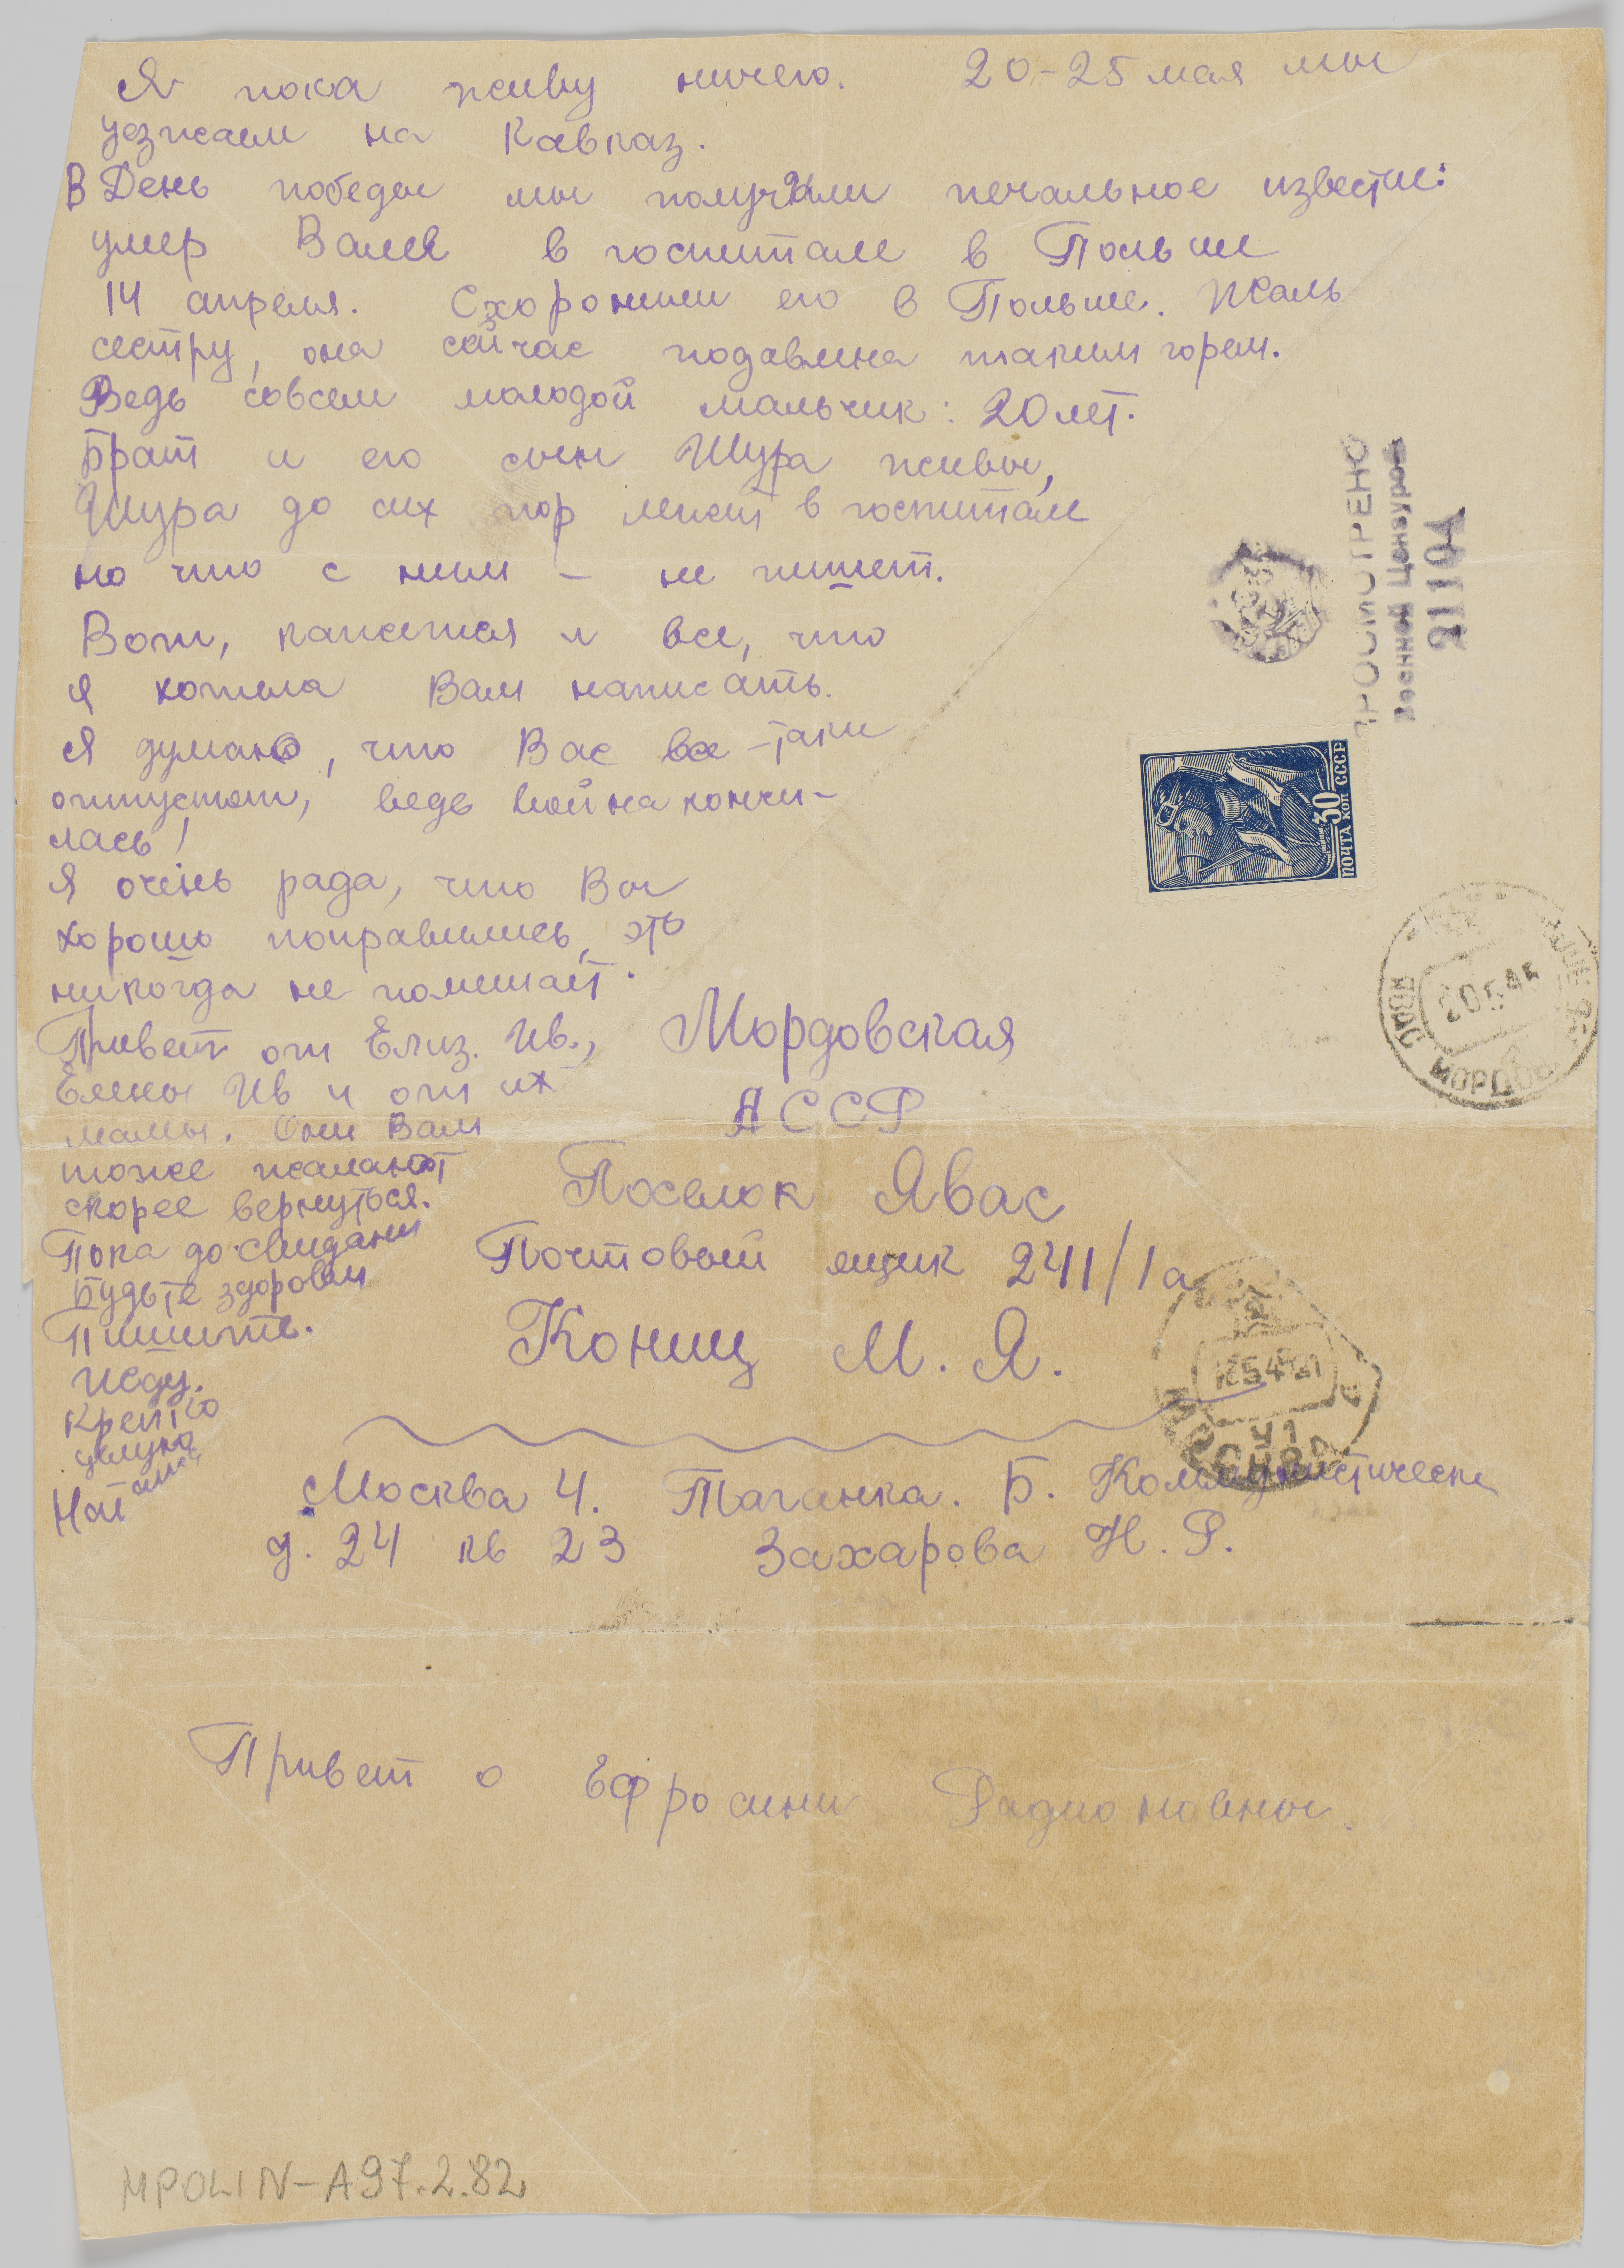 Я пока живу ничего. 20-25 мая мы
уезжаем на Кавказ.
В День победы мы получили печальное извести:
умер Валя в госпитале в Польше
14 апреля. Схоронили его в Польше. Жаль
сестру, она сейчас подавлена таким горем.
Ведь совсем молодой мальчик: 20 лет.
Брат и его сын Шура живы,
Шура до сих пор лежит в госпитале
но что с ним – не пишет.
Вот, кажется и все, что
я хотела Вам написать.
Я думаю, что Вас все-таки
отпустят, ведь война кончи-
лась!
Я очень рада, что Вы
хорошо поправились, это
никогда не помешает.
Привет от Елиз. Ив.,
Елены Ив и от их
мамы. Они Вам
тоже желают
скорее вернуться.
Пока до свидани
Будьте здоровы
Пишите.
Жду.
Крепко
целую
Наташа
Мордовская
АССР
Поселок Явас
Почтовый ящик 241/1а
Кониц М. Я.
Москва 4. Таганка. Б. Коммунистическ
д. 24 кв 23 Захарова Н. Р.
Привет о Ефросини Радионовны.
ПРОСМОТРЕНО
Военной Цензурой
21104
ПОЧТА 30 КОП СССР
20 5 45
МОРДОВ
МОСКВА
MPOLIN-A97.2.82